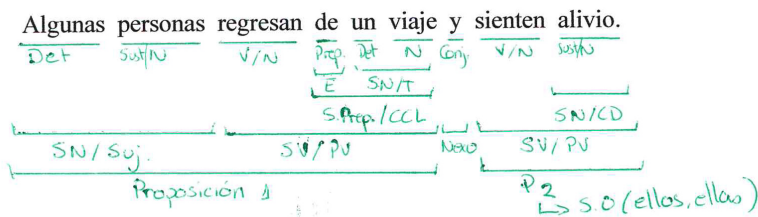 Algunas personas regresan de un viaje y sienten alivio.
Det Sust/N V/N Prep. Det N Conj. V/N Sust/N
E SN/T
S.Prep./CCL SN/CD
SN/Suj. SV/PV Nexo SV/PV
Proposición 1 P2
S.O (ellos, ellas)